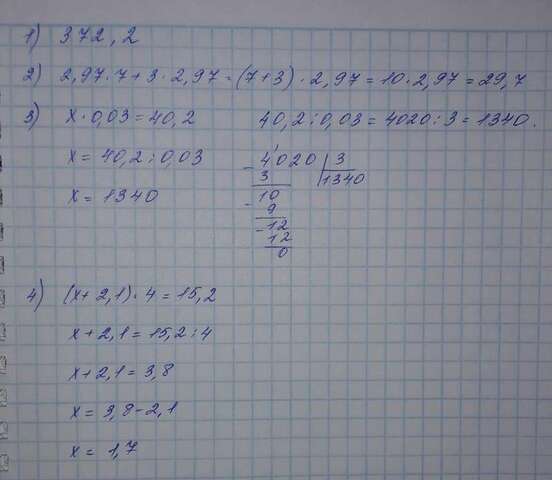 1) 372,2
2) 2,97·7+3·2,97=(7+3)·2,97=10·2,97=29,7
3) x·0,03=40,2 40,2:0,03=4020:3=1340.
x=40,2:0,03
x=1340
4020 3
3 1340
10
9
12
12
0
4) (x+2,1)·4=15,2
x+2,1=15,2:4
x+2,1=3,8
x=3,8-2,1
x=1,7